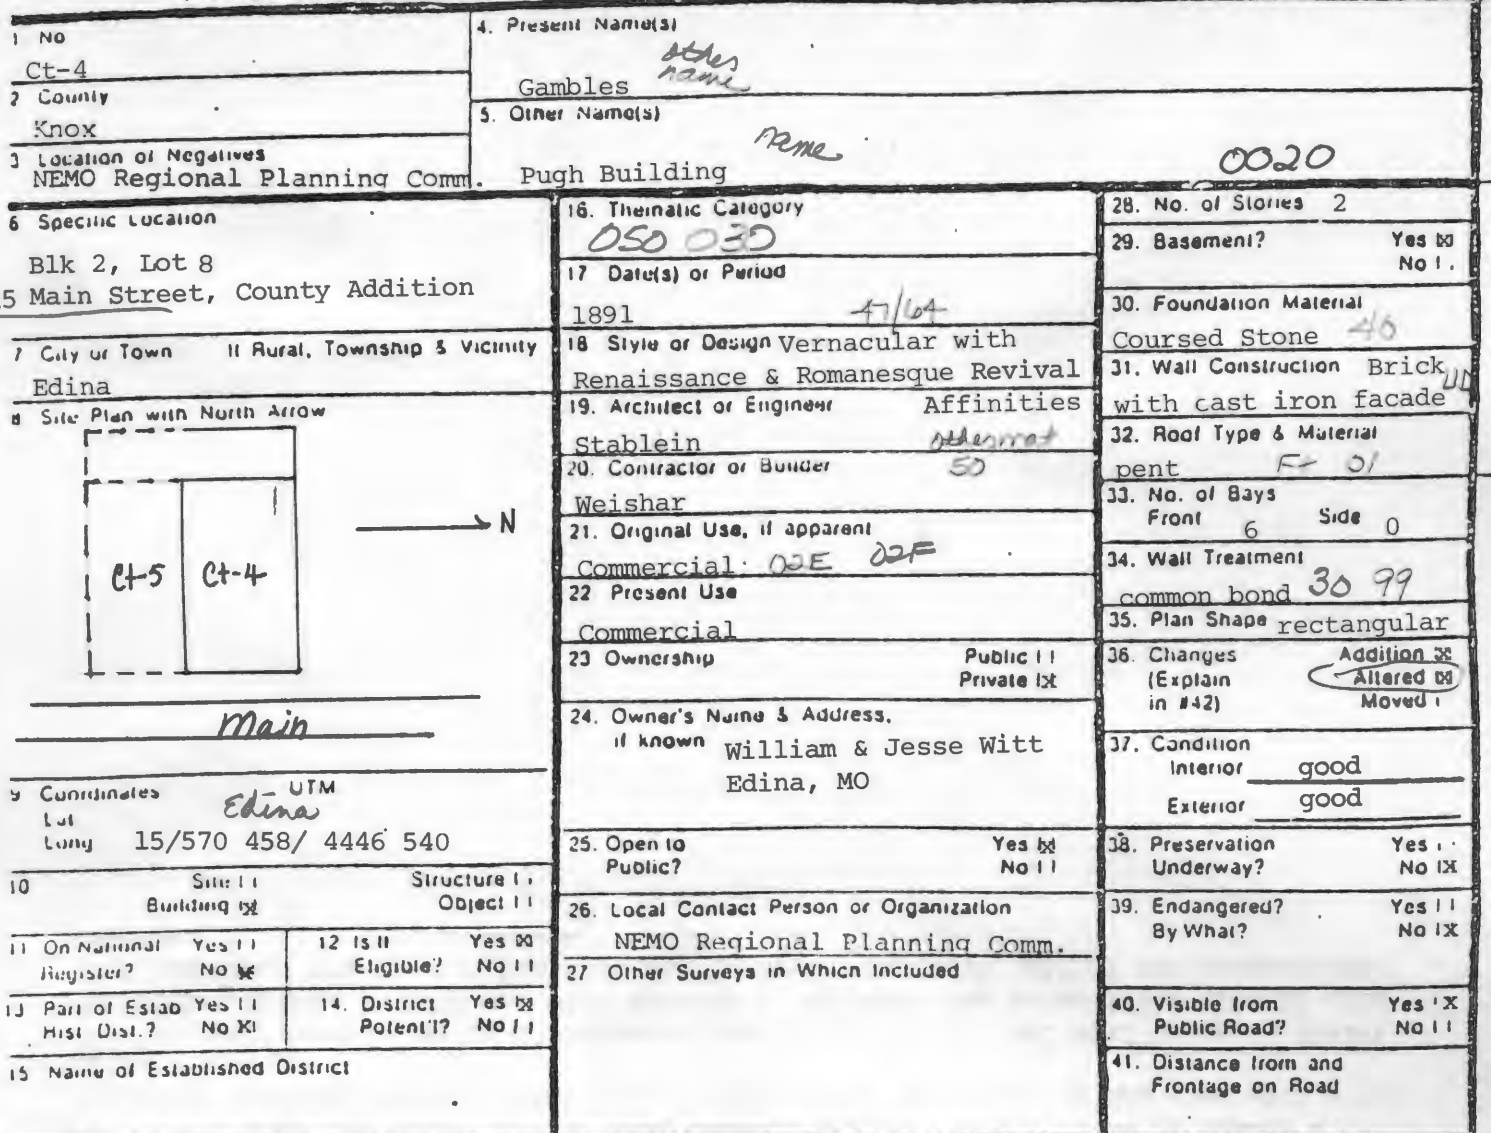 1 No
Ct-4
2 County
Knox
3 Location of Negatives
NEMO Regional Planning Comm.
4. Present Name(s)
other
name
Gambles
5. Other Name(s)
name
Pugh Building
0020
6 Specific Location
Blk 2, Lot 8
5 Main Street, County Addition
7 City or Town If Rural, Township & Vicinity
Edina
8 Site Plan with North Arrow
N
Ct-5 Ct-4
Main
9 Coordinates UTM
Edina
Lat
Long 15/570 458/ 4446 540
10 Site Structure
Building [X] Object
11 On National Yes
Register? No X
12 Is It Yes [X]
Eligible? No
13 Part of Estab Yes
Hist Dist.? No X
14. District Yes [X]
Potent'l? No
15 Name of Established District
16. Thematic Category
050 030
17 Date(s) or Period
1891 47/64
18 Style or Design Vernacular with
Renaissance & Romanesque Revival
19. Architect or Engineer Affinities
Stablein
20. Contractor or Builder 50
Weishar
21. Original Use, if apparent
Commercial 02E 02F
22 Present Use
Commercial
23 Ownership Public
Private [X]
24. Owner's Name & Address,
if known William & Jesse Witt
Edina, MO
25. Open to Yes [X]
Public? No
26. Local Contact Person or Organization
NEMO Regional Planning Comm.
27 Other Surveys in Which Included
28. No. of Stories 2
29. Basement? Yes [X]
No
30. Foundation Material
Coursed Stone 40
31. Wall Construction Brick
with cast iron facade
32. Roof Type & Material
pent 01
33. No. of Bays
Front 6 Side 0
34. Wall Treatment
common bond 30 99
35. Plan Shape rectangular
36. Changes Addition X
(Explain Altered [X]
in #42) Moved
37. Condition
Interior good
Exterior good
38. Preservation Yes
Underway? No X
39. Endangered? Yes
By What? No X
40. Visible from Yes X
Public Road? No
41. Distance from and
Frontage on Road